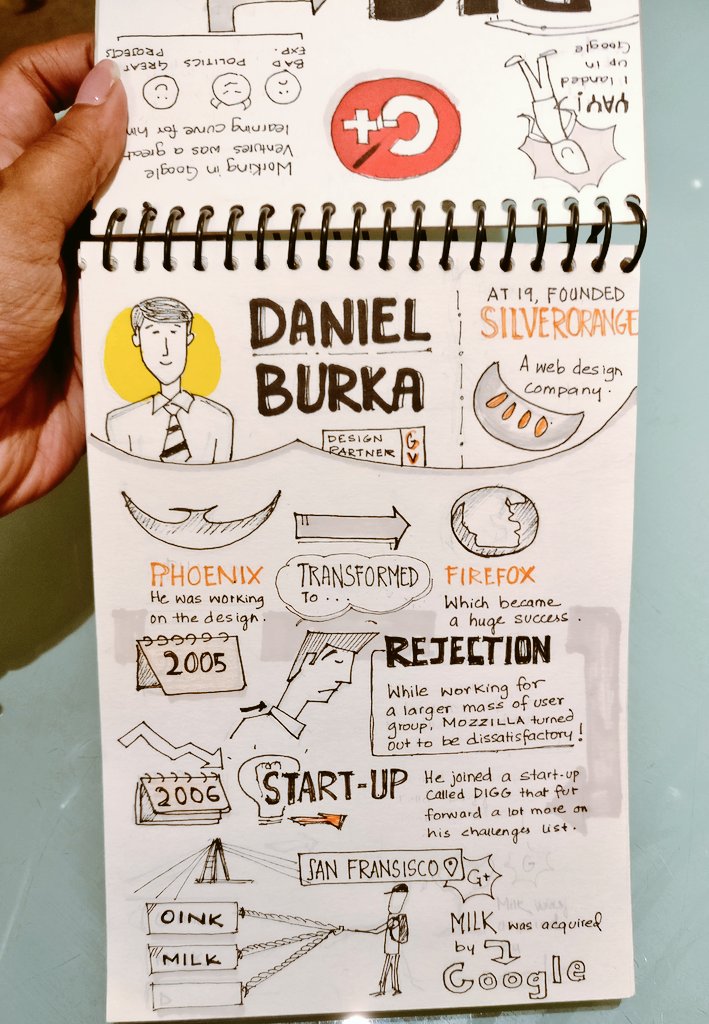 DIG
YAY!
I landed
up in
Google
G+
Working in Google
Ventures was a great
learning curve for him
BAD
EXP.
POLITICS
GREAT
PROJECTS
DANIEL
BURKA
DESIGN
PARTNER
GV
AT 19, FOUNDED
SILVERORANGE
A web design
company.
PHOENIX
He was working
on the design.
TRANSFORMED
TO ...
FIREFOX
Which became
a huge success.
2005
REJECTION
While working for
a larger mass of user
group, MOZZILLA turned
out to be dissatisfactory!
2006
START-UP
He joined a start-up
called DIGG that put
forward a lot more on
his challenges list.
SAN FRANSISCO
G+
OINK
MILK
MILK was acquired
by
Google